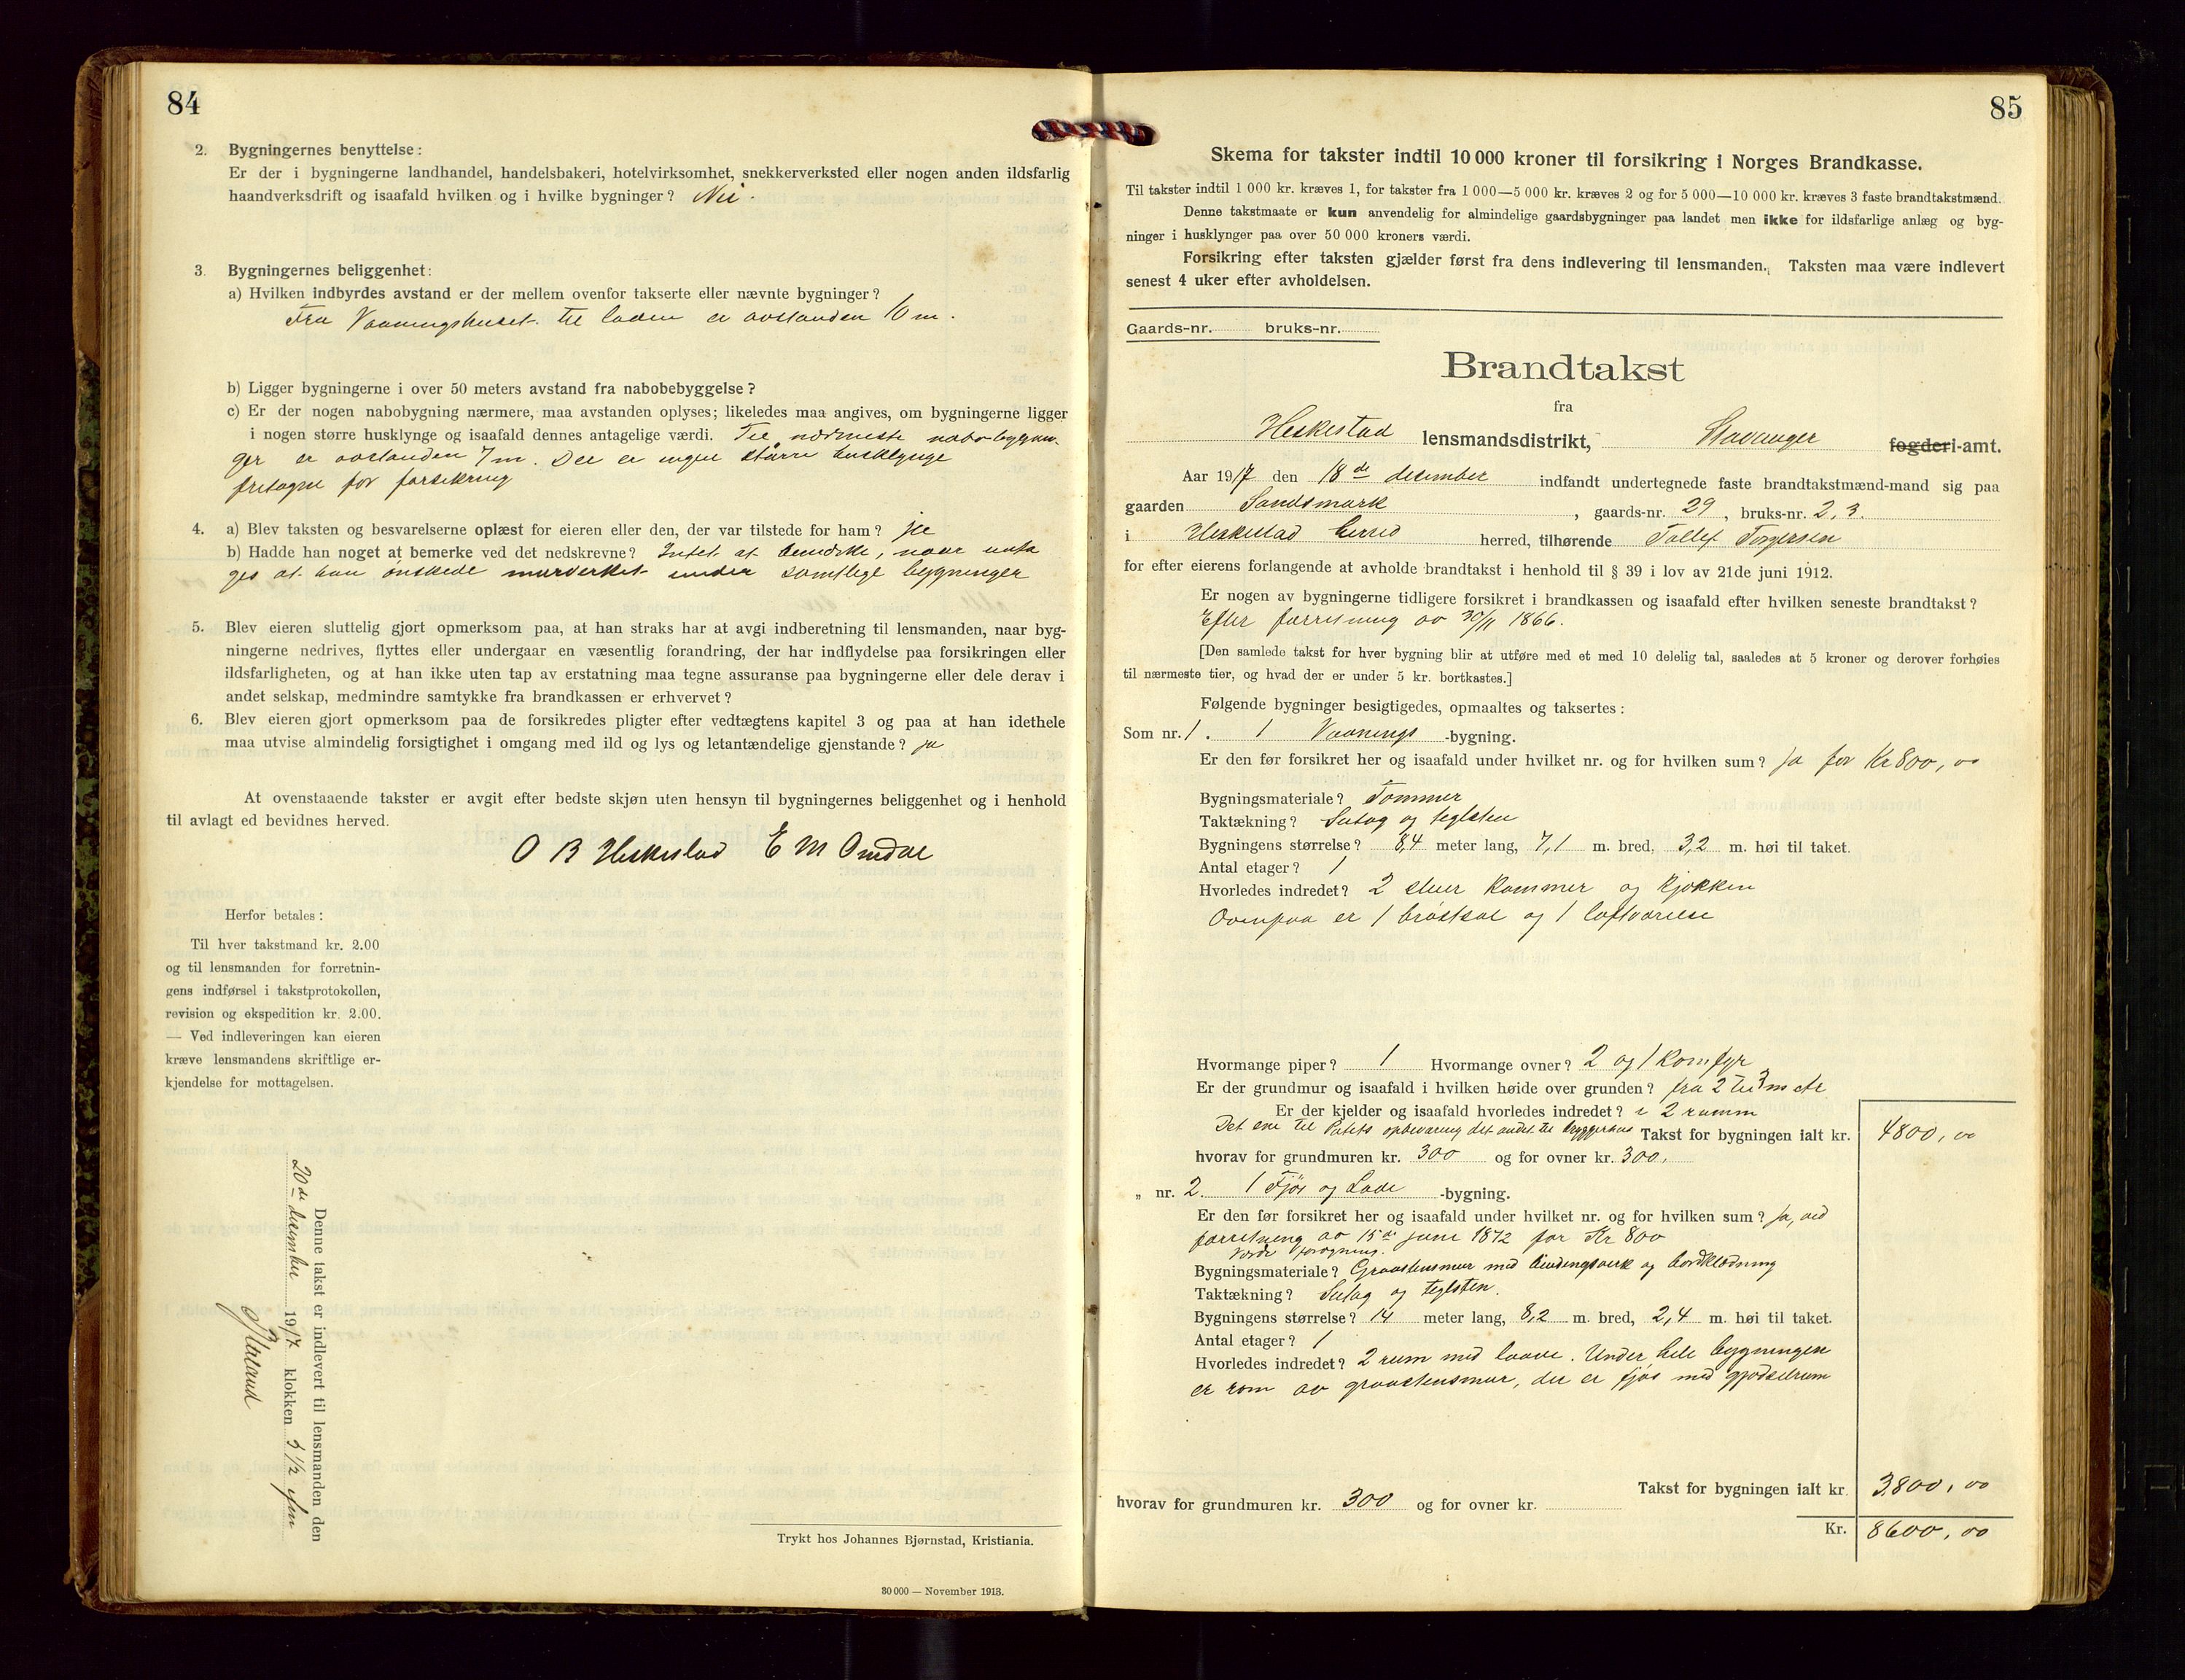 84
2. Bygningernes benyttelse:
Er der i bygningerne landhandel, handelsbakeri, hotelvirksomhet, snekkerverksted eller nogen anden ildsfarlig
haandverksdrift og isaafald hvilken og i hvilke bygninger? Nei.
3. Bygningernes beliggenhet:
a) Hvilken indbyrdes avstand er der mellem ovenfor takserte eller nævnte bygninger?
Fra Vaaningshuset til laden er avstanden 10 m.
b) Ligger bygningerne i over 50 meters avstand fra nabobebyggelse?
c) Er der nogen nabobygning nærmere, maa avstanden oplyses; likeledes maa angives, om bygningerne ligger
i nogen større husklynge og isaafald dennes antagelige værdi. Til nærmeste nabobygnin-
ger er avstanden 7 m. Der er ingen större husklynge
fritagne for forsikring
4. a) Blev taksten og besvarelserne oplæst for eieren eller den, der var tilstede for ham? ja
b) Hadde han noget at bemerke ved det nedskrevne? Intet at bemerke, naar unta
ges at han önskede murverket under samtlige bygninger
5. Blev eieren sluttelig gjort opmerksom paa, at han straks har at avgi indberetning til lensmanden, naar byg-
ningerne nedrives, flyttes eller undergaar en væsentlig forandring, der har indflydelse paa forsikringen eller
ildsfarligheten, og at han ikke uten tap av erstatning maa tegne assuranse paa bygningerne eller dele derav i
andet selskap, medmindre samtykke fra brandkassen er erhvervet?
6. Blev eieren gjort opmerksom paa de forsikredes pligter efter vedtægtens kapitel 3 og paa at han idethele
maa utvise almindelig forsigtighet i omgang med ild og lys og letantændelige gjenstande? ja
At ovenstaaende takster er avgit efter bedste skjøn uten hensyn til bygningernes beliggenhet og i henhold
til avlagt ed bevidnes herved.
O B Heskestad E M Omdal
Herfor betales:
Til hver takstmand kr. 2.00
og til lensmanden for forretnin-
gens indførsel i takstprotokollen,
revision og ekspedition kr. 2.00.
— Ved indleveringen kan eieren
kræve lensmandens skriftlige er-
kjendelse for mottagelsen.
Denne takst er indlevert til lensmanden den
20de december 1917 klokken 3 1/2 fm
Trykt hos Johannes Bjørnstad, Kristiania.
30 000 — November 1913.
85
Skema for takster indtil 10 000 kroner til forsikring i Norges Brandkasse.
Til takster indtil 1 000 kr. kræves 1, for takster fra 1 000—5 000 kr. kræves 2 og for 5 000—10 000 kr. kræves 3 faste brandtakstmænd.
Denne takstmaate er kun anvendelig for almindelige gaardsbygninger paa landet men ikke for ildsfarlige anlæg og byg-
ninger i husklynger paa over 50 000 kroners værdi.
Forsikring efter taksten gjælder først fra dens indlevering til lensmanden. Taksten maa være indlevert
senest 4 uker efter avholdelsen.
Gaards-nr. bruks-nr.
Brandtakst
fra
Heskestad lensmandsdistrikt, Stavanger fogderi-amt.
Aar 1917 den 18de december indfandt undertegnede faste brandtakstmænd-mand sig paa
gaarden Sandsmark, gaards-nr. 29, bruks-nr. 2, 3.
i Heskestad herred herred, tilhørende Tollef Torgersen
for efter eierens forlangende at avholde brandtakst i henhold til § 39 i lov av 21de juni 1912.
Er nogen av bygningerne tidligere forsikret i brandkassen og isaafald efter hvilken seneste brandtakst?
Efter forretning av 30/11 1866.
[Den samlede takst for hver bygning blir at utføre med et med 10 delelig tal, saaledes at 5 kroner og derover forhøies
til nærmeste tier, og hvad der er under 5 kr. bortkastes.]
Følgende bygninger besigtigedes, opmaaltes og taksertes:
Som nr. 1. 1 Vaanings -bygning.
Er den før forsikret her og isaafald under hvilket nr. og for hvilken sum? ja for Kr 800,00
Bygningsmateriale? Tommer
Taktækning? Sutag og teglsten
Bygningens størrelse? 8,4 meter lang, 7,1 m. bred, 3,2 m. høi til taket.
Antal etager? 1
Hvorledes indredet? 2 stuer kammer og kjøkken
Ovenpaa er 1 bröstsal og 1 loftværelse
Hvormange piper? 1 Hvormange ovner? 2 og 1 Komfyr
Er der grundmur og isaafald i hvilken høide over grunden? fra 2 til 3 mete
Er der kjelder og isaafald hvorledes indredet? i 2 rumm
Det ene til Potets opbevaring det andet til bryggerhus Takst for bygningen ialt kr. 4800,00
hvorav for grundmuren kr. 300 og for ovner kr. 300.
„ nr. 2. 1 Fjös og Lade -bygning.
Er den før forsikret her og isaafald under hvilket nr. og for hvilken sum? Ja, ved
forretning av 15de juni 1872 for Kr 800
Bygningsmateriale? Graastensmur med bindingsverk og bordklædning
Taktækning? Sutag og teglsten.
Bygningens størrelse? 14 meter lang, 8,2 m. bred, 2,4 m. høi til taket.
Antal etager? 1
Hvorledes indredet? 2 rum med laave. Under hele bygningen
er rom av graastensmur, der er fjös med gjödselrum
Takst for bygningen ialt kr. 3800,00
hvorav for grundmuren kr. 300 og for ovner kr.
Kr. 8600,00